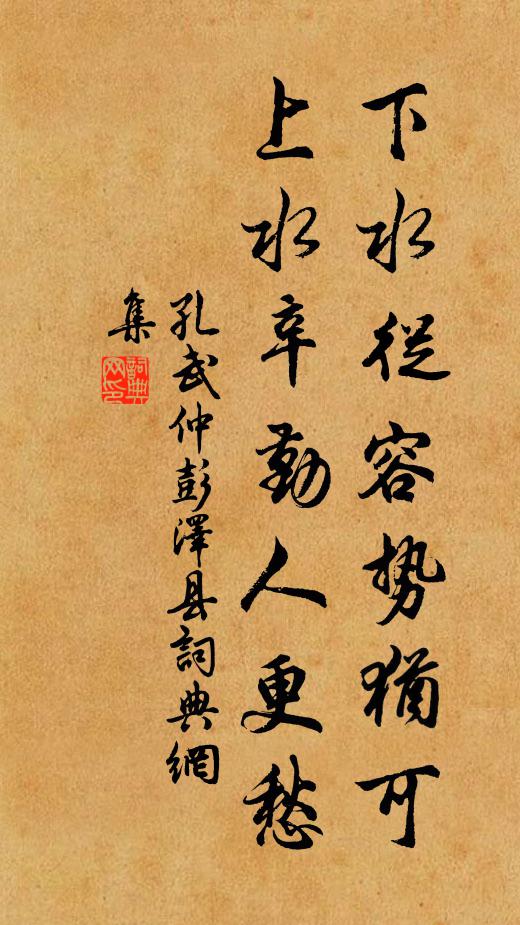 下水從容势猶可
上水辛勤人更愁
孔武仲彭澤县詞典網
集
詞典网印